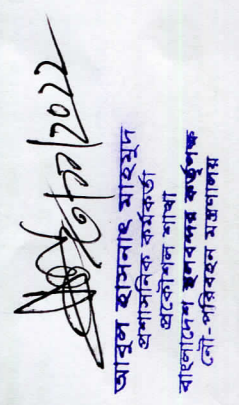 ২৩/১১/2022
আবুল হাসনাৎ মাহমুদ
প্রশাসনিক কর্মকর্তা
প্রকৌশল শাখা
বাংলাদেশ স্থলবন্দর কর্তৃপক্ষ
নৌ-পরিবহন মন্ত্রণালয়